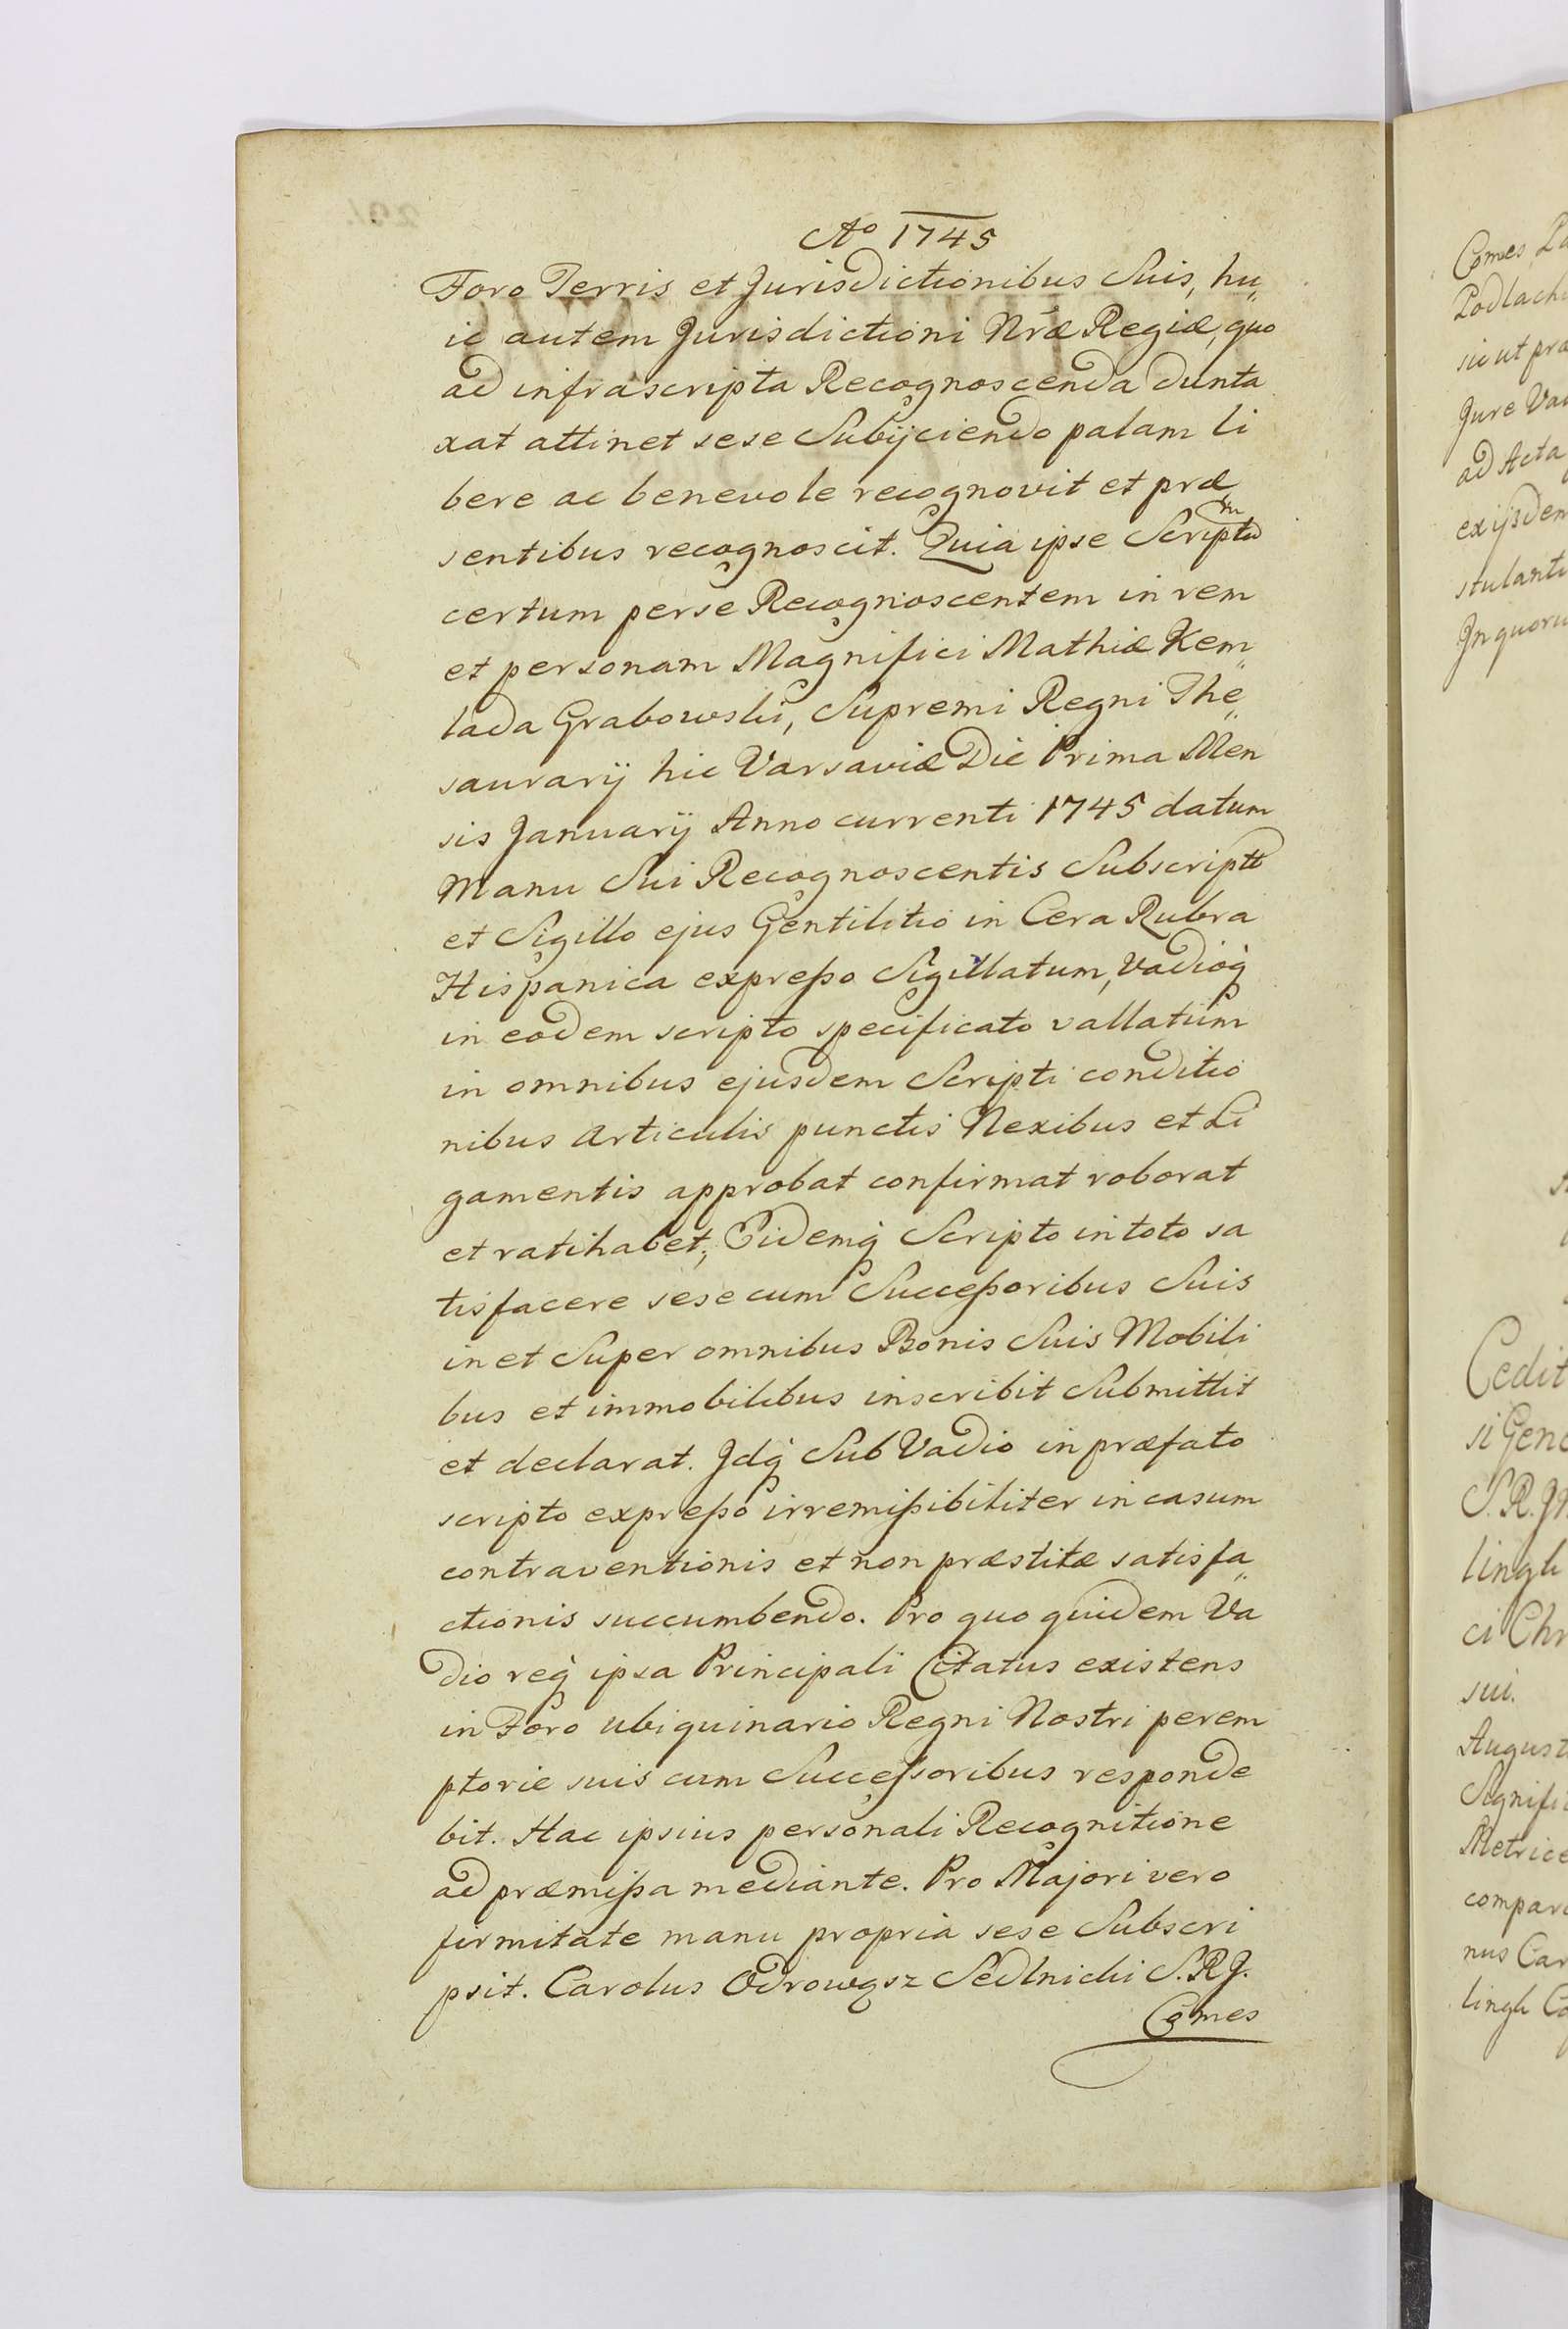 Aº 1745
Foro Terris et Jurisdictionibus Suis, hu„
ic autem Jurisdictioni Nræ Regiæ, quo
ad infrascripta Recognoscenda dunta
xat attinet sese Subijciendo palam li
bere ac benevole recognovit et præ„
sentibus recognoscit. Quia ipse Scriptū
certum perse Recognoscentem in rem
et personam Magnifici Mathiæ Kem„
lada Grabowski, Supremi Regni The„
saurarij hic Varsaviæ Die Prima Men
sis Januarij Anno currenti 1745 datum
Manu Sui Recognoscentis Subscriptt
et Sigillo ejus Gentilitio in Cera Rubra
Hispanica expreßo Sigillatum, Vadioq̀
in eodem scripto specificato vallatum
in omnibus ejusdem Scripti conditio
nibus Articulis punctis Nexibus et Li
gamentis approbat confirmat roborat
et ratihabet; Eidemq̀ Scripto in toto sa
tisfacere sese cum Succeßoribus Suis
in et Super omnibus Bonis Suis Mobili
bus et immobilibus inscribit Submittit
et declarat. Jdq̀ Sub Vadio in præfato
scripto expreßo irremißibiliter in casum
contraventionis et non præstitæ satisfa„
ctionis succumbendo. Pro quo quidem Va
dio req̀ ipsa Principali Citatus existens
in Foro ubiquinario Regni Nostri perem
ptorie suis cum Succeſsoribus responde
bit. Hac ipsius personali Recognitione
ad præmißa mediante. Pro Majori vero
firmitate manu propria sese Subscri
psit. Carolus Odrowąsz Sedlnicki S.R.J.
Comes
Comes
Podlach
sic ut præ
Jure
ad Acta
ex ijsdem
stulant
Jn quoru
Cedit
si Gene
S.R.J
lingk
ci Chr
sui.
August
Signifi
Metrice
compar
nus Car
lingk Co